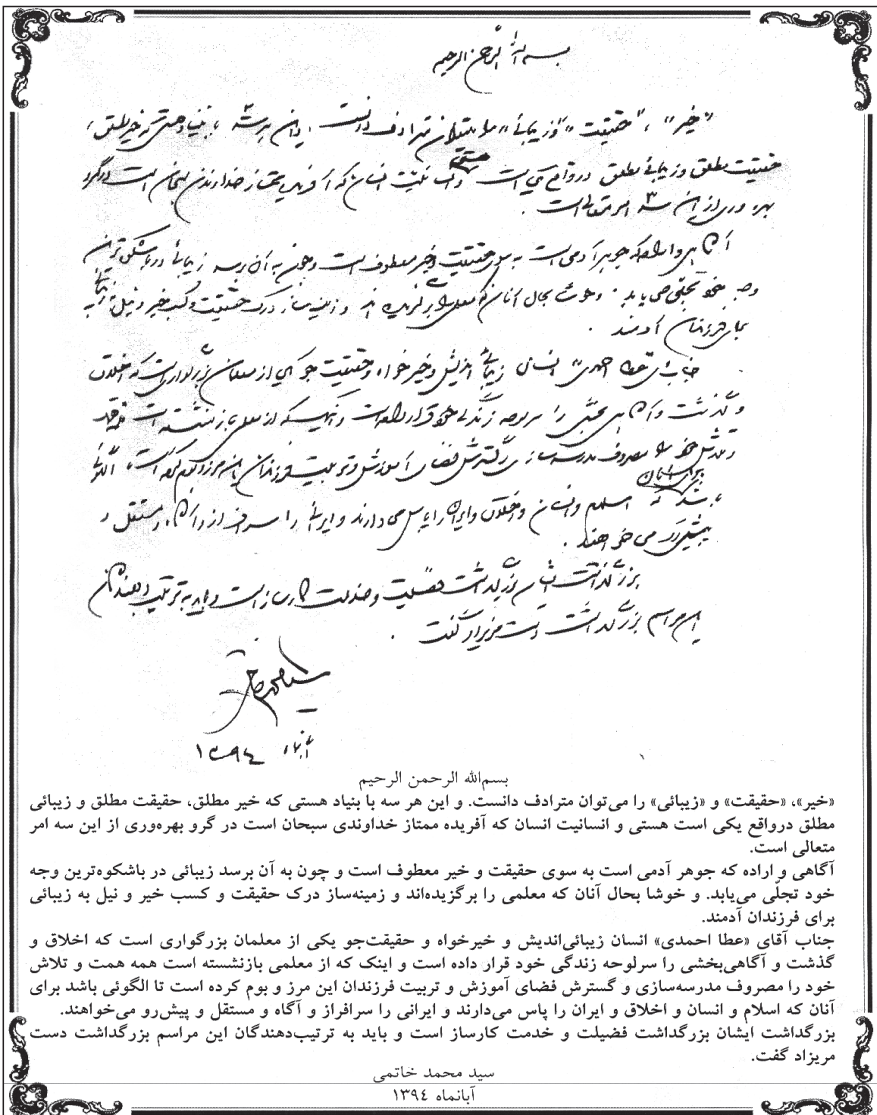 بسم الله الرحمن الرحیم
"خیر"، "حقیقت" و "زیبائی" را می‌توان مترادف دانست و این هر سه با بنیاد هستی که خیر مطلق،
حقیقت مطلق و زیبائی مطلق در واقع یکی است هستی و انسانیت انسان که آفریده ممتاز خداوندی سبحان است در گرو
بهره‌وری از این سه امر متعالی است.
آگاهی و اراده که جوهر آدمی است به سوی حقیقت و خیر معطوف است و چون به آن برسد زیبائی در باشکوه‌ترین
وجه خود تجلی می‌یابد. و خوشا بحال آنان که معلمی را برگزیده‌اند و زمینه‌ساز درک حقیقت و کسب خیر و نیل به زیبائی
برای فرزندان آدمند.
جناب آقای عطا احمدی انسان زیبائی‌اندیش و خیرخواه و حقیقت‌جو یکی از معلمان بزرگواری است که اخلاق
و گذشت و آگاهی‌بخشی را سرلوحه زندگی خود قرار داده است و اینک که از معلمی بازنشسته است همه همت
و تلاش خود را مصروف مدرسه‌سازی و گسترش فضای آموزش و تربیت فرزندان این مرز و بوم کرده است تا الگوئی
باشد برای آنان که اسلام و انسان و اخلاق و ایران را پاس می‌دارند و ایرانی را سرافراز و آگاه و مستقل و
پیش‌رو می‌خواهند.
بزرگداشت ایشان بزرگداشت فضیلت و خدمت کارساز است و باید به ترتیب‌دهندگان
این مراسم بزرگداشت دست مریزاد گفت.
آبانماه ۱۳۹۴
بسم‌الله الرحمن الرحیم
«خیر»، «حقیقت» و «زیبائی» را می‌توان مترادف دانست. و این هر سه با بنیاد هستی که خیر مطلق، حقیقت مطلق و زیبائی
مطلق درواقع یکی است هستی و انسانیت انسان که آفریده ممتاز خداوندی سبحان است در گرو بهره‌وری از این سه امر
متعالی است.
آگاهی و اراده که جوهر آدمی است به سوی حقیقت و خیر معطوف است و چون به آن برسد زیبائی در باشکوه‌ترین وجه
خود تجلّی می‌یابد. و خوشا بحال آنان که معلمی را برگزیده‌اند و زمینه‌ساز درک حقیقت و کسب خیر و نیل به زیبائی
برای فرزندان آدمند.
جناب آقای «عطا احمدی» انسان زیبائی‌اندیش و خیرخواه و حقیقت‌جو یکی از معلمان بزرگواری است که اخلاق و
گذشت و آگاهی‌بخشی را سرلوحه زندگی خود قرار داده است و اینک که از معلمی بازنشسته است همه همت و تلاش
خود را مصروف مدرسه‌سازی و گسترش فضای آموزش و تربیت فرزندان این مرز و بوم کرده است تا الگوئی باشد برای
آنان که اسلام و انسان و اخلاق و ایران را پاس می‌دارند و ایرانی را سرافراز و آگاه و مستقل و پیش‌رو می‌خواهند.
بزرگداشت ایشان بزرگداشت فضیلت و خدمت کارساز است و باید به ترتیب‌دهندگان این مراسم بزرگداشت دست
مریزاد گفت.
سید محمد خاتمی
آبانماه ۱۳۹٤